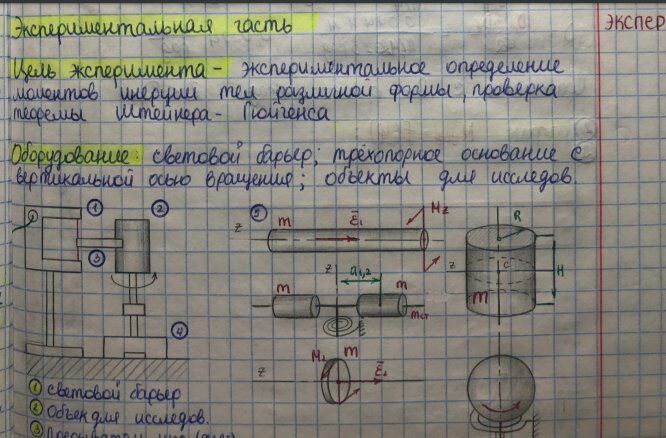 Экспериментальная часть
Экспер
Цель эксперимента - экспериментальное определение
моментов инерции тел различной формы, проверка
теоремы Штейнера - Гюйгенса
Оборудование: световой барьер; трёхопорное основание с
вертикальной осью вращение; объекты для исследов.
1 2 3 4
5 m ε₁ Mz z
z a₁,₂ m m mст
z M₂ m ε₂
R z c H m
1 световой барьер
2 Объек для исследов.
3